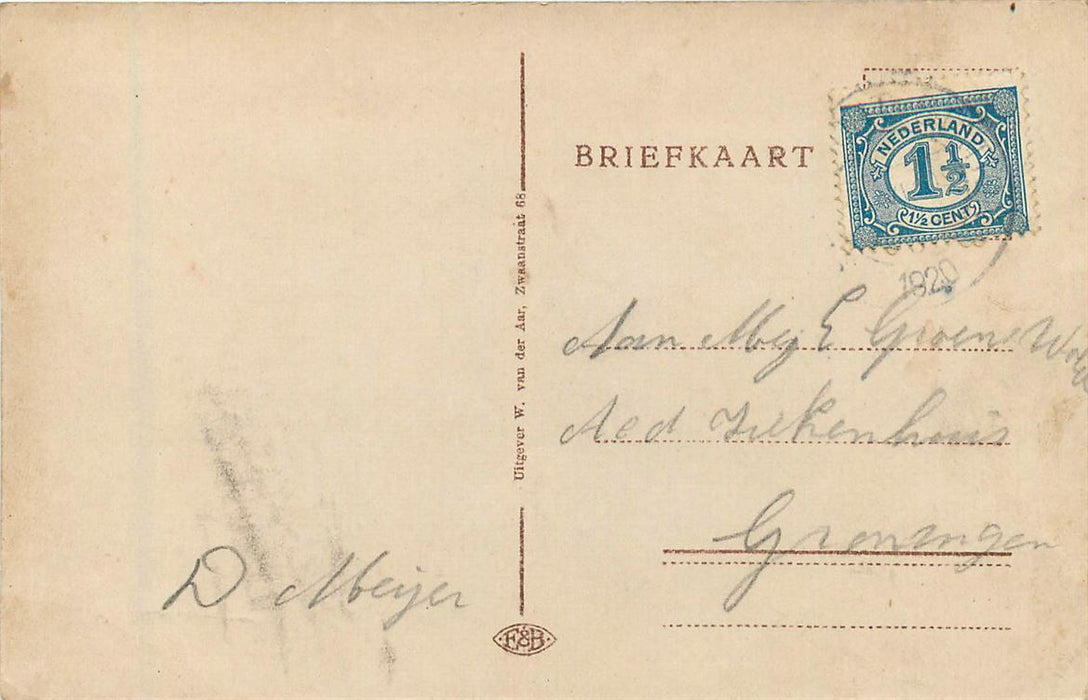 BRIEFKAART
NEDERLAND
1½
1½ CENT
1920
Uitgever W. van der Aar, Zwaanstraat 68
Aan Mej E Groenewold
Acd Ziekenhuis
Groningen
D Meijer
E&B